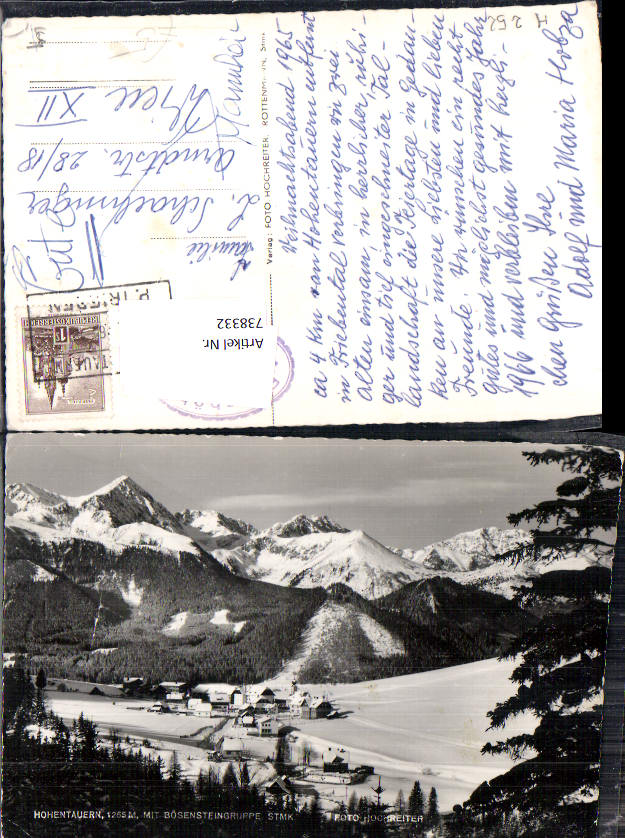 H 252
Weihnachtsabend 1965
ca 4 km von Hohentauern entfernt
in Triebental verbringen wir zwei
Alten einsam, in herrlicher, ruhi-
ger und tief eingeschneiter Tal-
landschaft die Feiertage in Gedan-
ken an unsere Liebsten und lieben
Freunde. Wir wünschen ein recht
gutes und möglichst gesundes Jahr
1966 und verbleiben mit herzli-
chen Grüßen Ihre
Adolf und Maria
Verlag: FOTO HOCHREITER, ROTTENMANN, Stmk
Familie
L. Schachinger
Arndtstr. 28/18
Wien XII
REPUBLIK ÖSTERREICH
Artikel Nr.
738332
HOHENTAUERN, 1265 M, MIT BÖSENSTEINGRUPPE STMK.
FOTO HOCHREITER